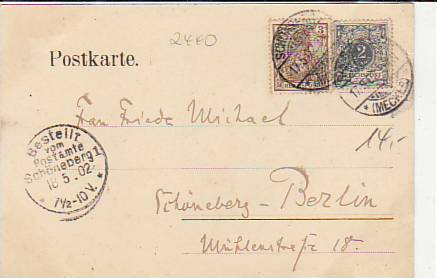 2440
Postkarte.
3
2
(MECKL)
Frau Frieda Michael
14,-
Bestellt
vom
Postamte
Schöneberg 1
18.5.02
7½-10V.
Schöneberg-Berlin
Mühlenstraße 18.